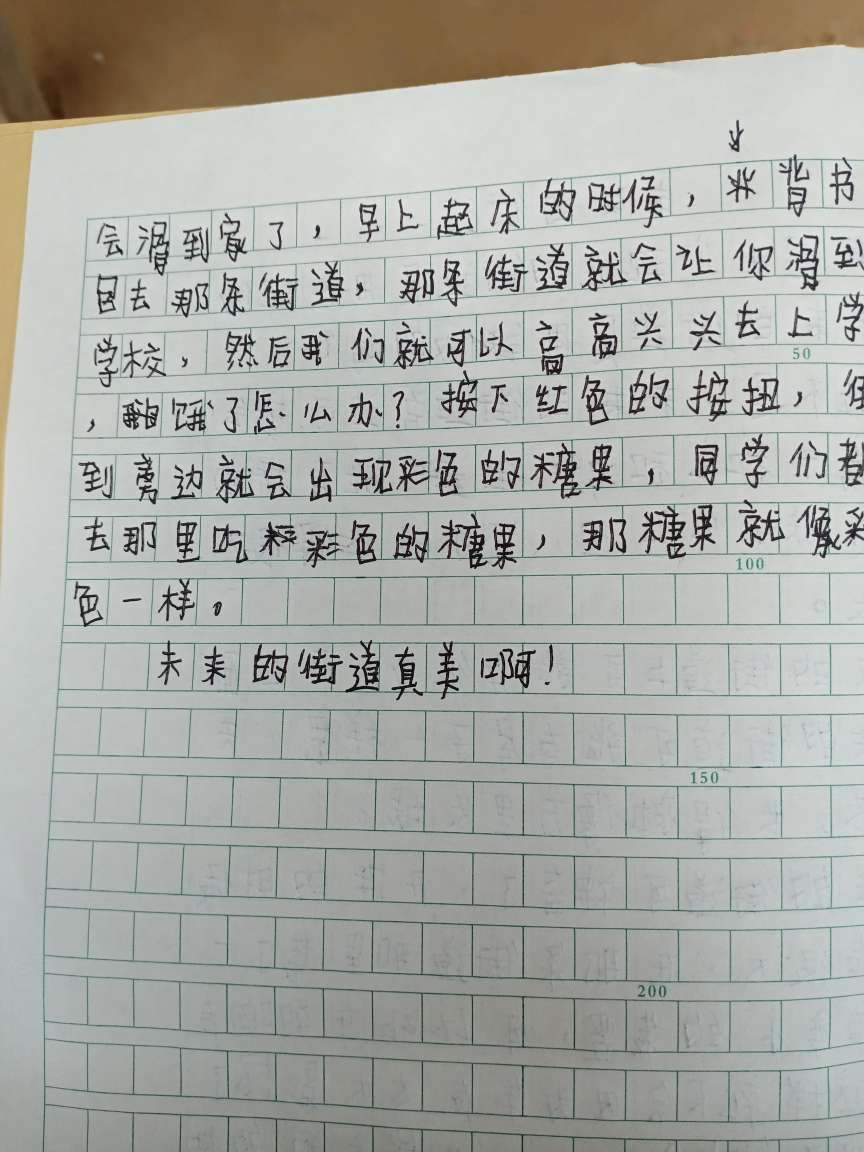 会滑到家了，早上起床的时候，背书
包去那条街道，那条街道就会让你滑到
学校，然后我们就可以高高兴兴去上学
50
，饿了怎么办？按下红色的按扭，
到旁边就会出现彩色的糖果，同学们都
去那里吃彩色的糖果，那糖果就像彩
100
色一样。
未来的街道真美啊！
150
200